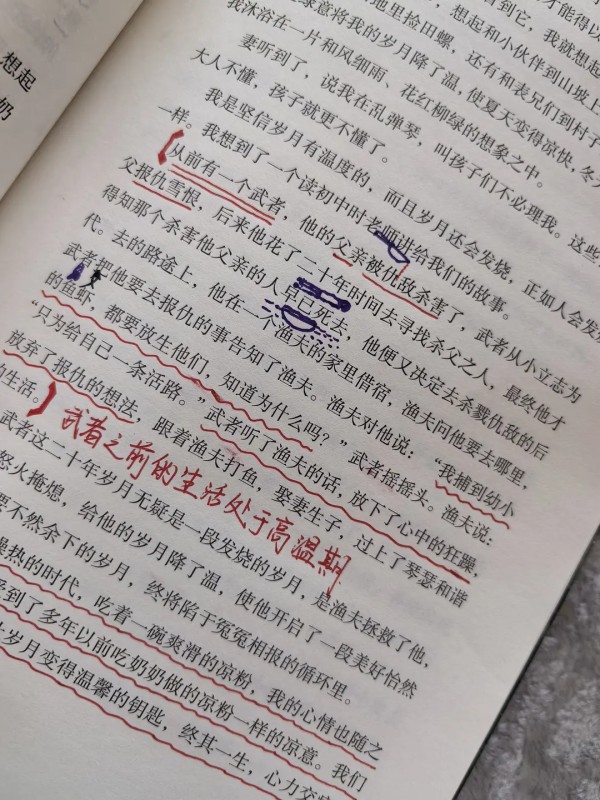 想起
奶
才能得以
到它，我就想起
，想起和小伙伴到山坡上
地里捡田螺，还有和表兄们到村子
意将我的岁月降了温，使夏天变得凉快，冬天
我沐浴在一片和风细雨、花红柳绿的想象之中。
妻听到了，说我在乱弹琴，叫孩子们不必理我。这些
大人不懂，孩子就更不懂了。
我是坚信岁月有温度的，而且岁月还会发烧，正如人会发烧
一样。我想到了一个读初中时老师讲给我们的故事。
从前有一个武者，他的父亲被仇敌杀害了，武者从小立志为
父报仇雪恨，后来他花了二十年时间去寻找杀父之人，最终他才
得知那个杀害他父亲的人早已死去，他便又决定去杀戮仇敌的后
代。去的路途上，他在一个渔夫的家里借宿，渔夫问他要去哪里，
武者把他要去报仇的事告知了渔夫。渔夫对他说：“我捕到幼小
的鱼虾，都要放生他们，知道为什么吗？”武者摇摇头。渔夫说：
“只为给自己一条活路。”武者听了渔夫的话，放下了心中的狂躁，
放弃了报仇的想法，跟着渔夫打鱼，娶妻生子，过上了琴瑟和谐
的生活。
武者之前的生活处于高温期
武者这二十年岁月无疑是一段发烧的岁月，是渔夫拯救了他，
怒火掩熄，给他的岁月降了温，使他开启了一段美好怡然
要不然余下的岁月，终将陷于冤冤相报的循环里。
燥热的时代，吃着一碗爽滑的凉粉，我的心情也随之
受到了多年以前吃奶奶做的凉粉一样的凉意。我们
岁月变得温馨的钥匙，终其一生，心力交